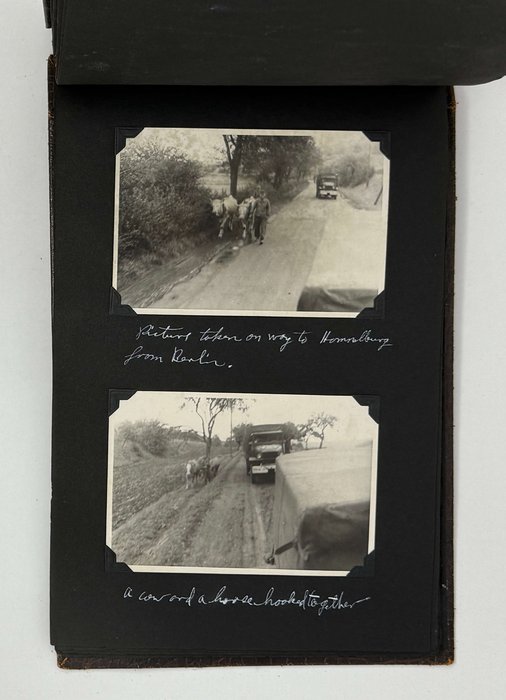 Picture taken on way to Hommelburg
from Berlin.
a cow and a horse hooked together